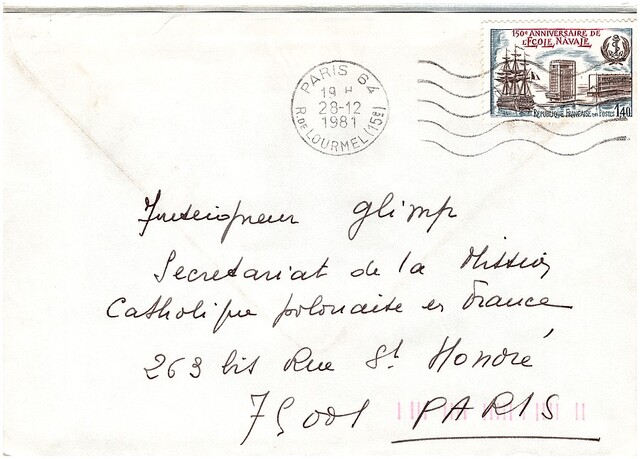 PARIS 64
19 H
28-12
1981
R. DE LOURMEL (15e)
150e ANNIVERSAIRE DE
L'ÉCOLE NAVALE
RÉPUBLIQUE FRANÇAISE POSTES 1,40
Glimp
Secretariat de la Mission
Catholique polonaise en France
263 bis Rue St Honoré
75001 PARIS